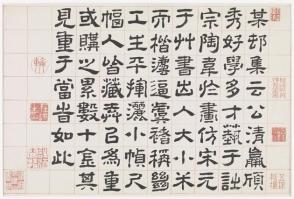 某邨集云公清羸頎
秀好學多才藝于詩
宗陶韋於畫仿宋元
于艸書出入大小米
而楷灋逼虞褚稱
工生平揮灑小幀尺
幅人皆藏弆㠯為重
或購之累數十金其
見重于當旹如此